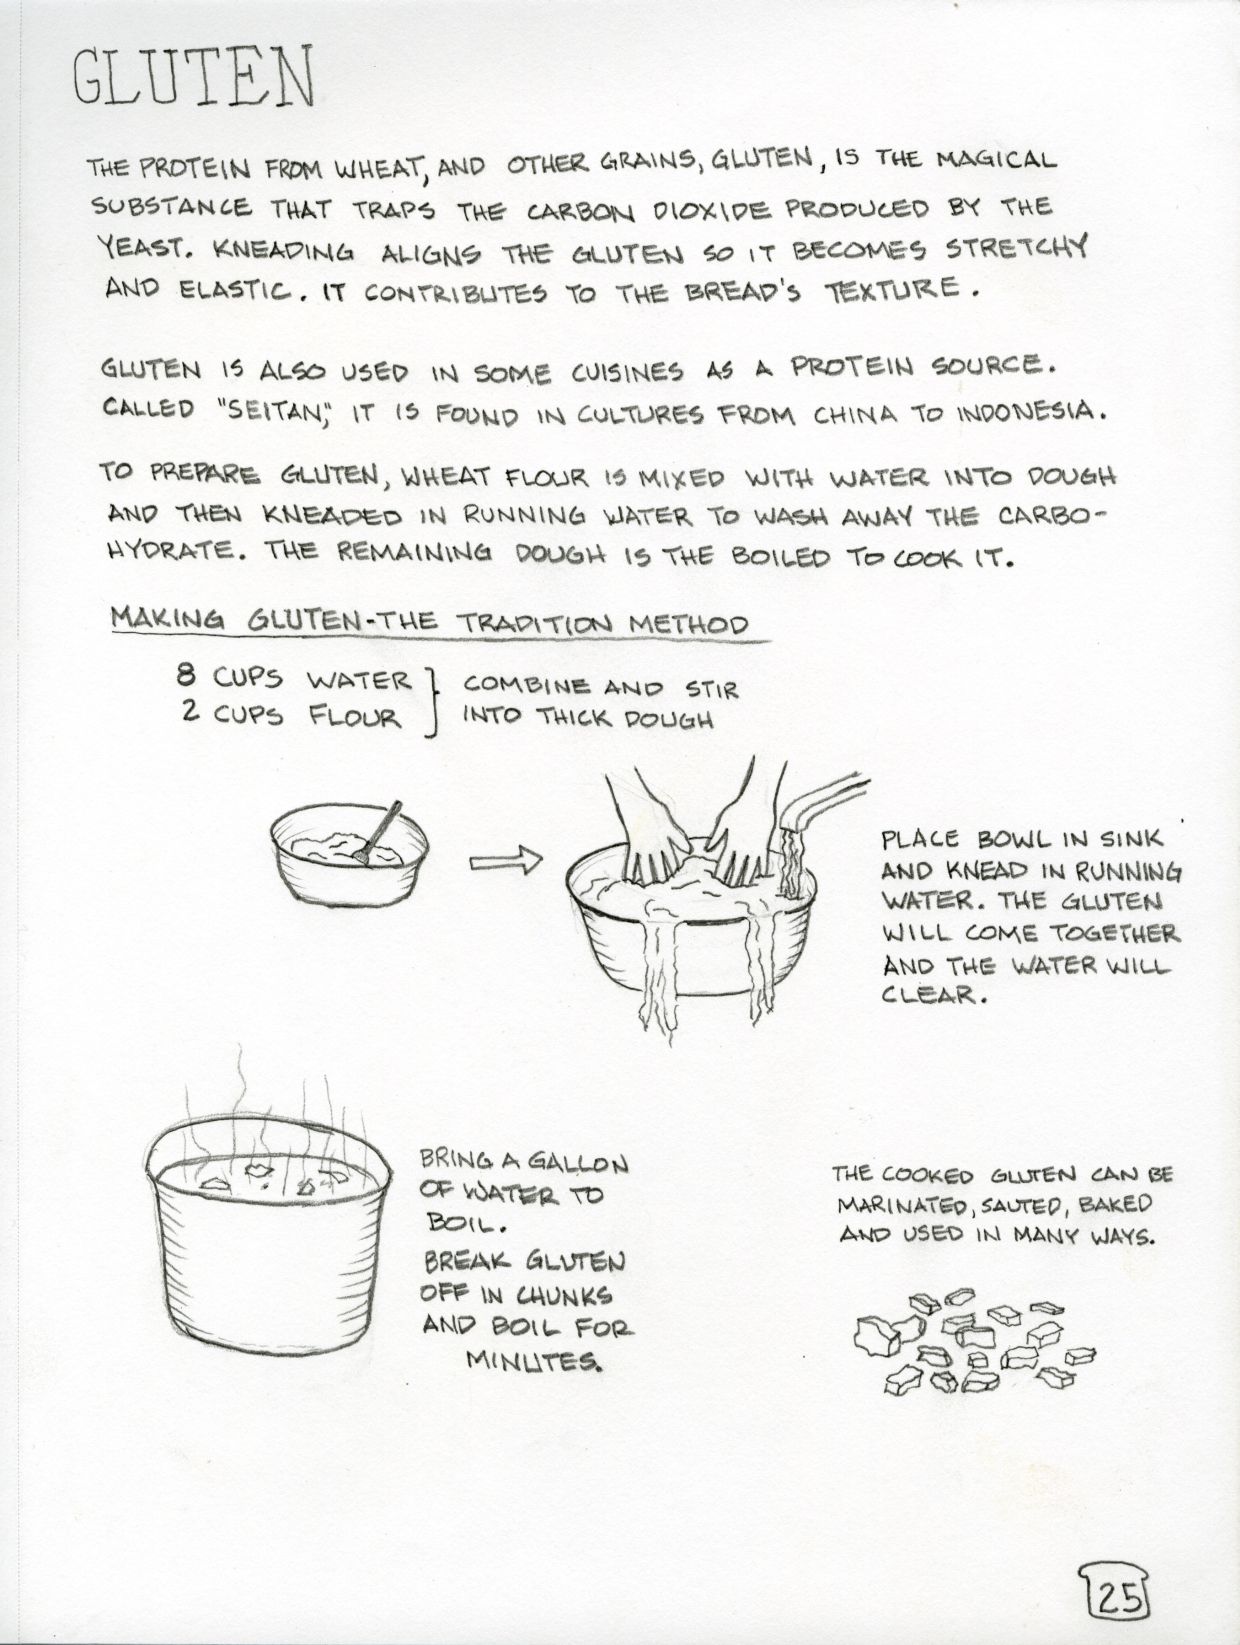 GLUTEN
THE PROTEIN FROM WHEAT, AND OTHER GRAINS, GLUTEN, IS THE MAGICAL
SUBSTANCE THAT TRAPS THE CARBON DIOXIDE PRODUCED BY THE
YEAST. KNEADING ALIGNS THE GLUTEN SO IT BECOMES STRETCHY
AND ELASTIC. IT CONTRIBUTES TO THE BREAD'S TEXTURE.
GLUTEN IS ALSO USED IN SOME CUISINES AS A PROTEIN SOURCE.
CALLED "SEITAN," IT IS FOUND IN CULTURES FROM CHINA TO INDONESIA.
TO PREPARE GLUTEN, WHEAT FLOUR IS MIXED WITH WATER INTO DOUGH
AND THEN KNEADED IN RUNNING WATER TO WASH AWAY THE CARBO-
HYDRATE. THE REMAINING DOUGH IS THE BOILED TO COOK IT.
MAKING GLUTEN-THE TRADITION METHOD
8 CUPS WATER } COMBINE AND STIR
2 CUPS FLOUR } INTO THICK DOUGH
PLACE BOWL IN SINK
AND KNEAD IN RUNNING
WATER. THE GLUTEN
WILL COME TOGETHER
AND THE WATER WILL
CLEAR.
BRING A GALLON
OF WATER TO
BOIL.
BREAK GLUTEN
OFF IN CHUNKS
AND BOIL FOR
MINUTES.
THE COOKED GLUTEN CAN BE
MARINATED, SAUTED, BAKED
AND USED IN MANY WAYS.
25